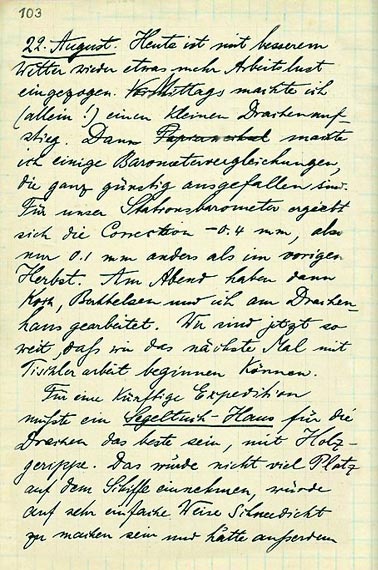 103
22. August. Heute ist mit besserem
Wetter wieder etwas mehr Arbeitslust
eingezogen. Vormittags machte ich
(allein!) einen kleinen Drachenauf-
stieg. Dann machte
ich einige Barometervergleichungen,
die ganz günstig ausgefallen sind.
Für unser Stationsbarometer ergiebt
sich die Correction -0.4 mm, also
nur 0.1 mm anders als im vorigen
Herbst. Am Abend haben dann
Koch, Berthelsen und ich am Drachen-
haus gearbeitet. Wir sind jetzt so
weit, daß wir das nächste Mal mit
Tischlerarbeit beginnen können.
Für eine künftige Expedition
müßte ein Segeltuch-Haus für die
Drachen das beste sein, mit Holz-
gerippe. Das würde nicht viel Platz
auf dem Schiffe einnehmen, würde
auf sehr einfache Weise schneedicht
zu machen sein und hätte ausserdem